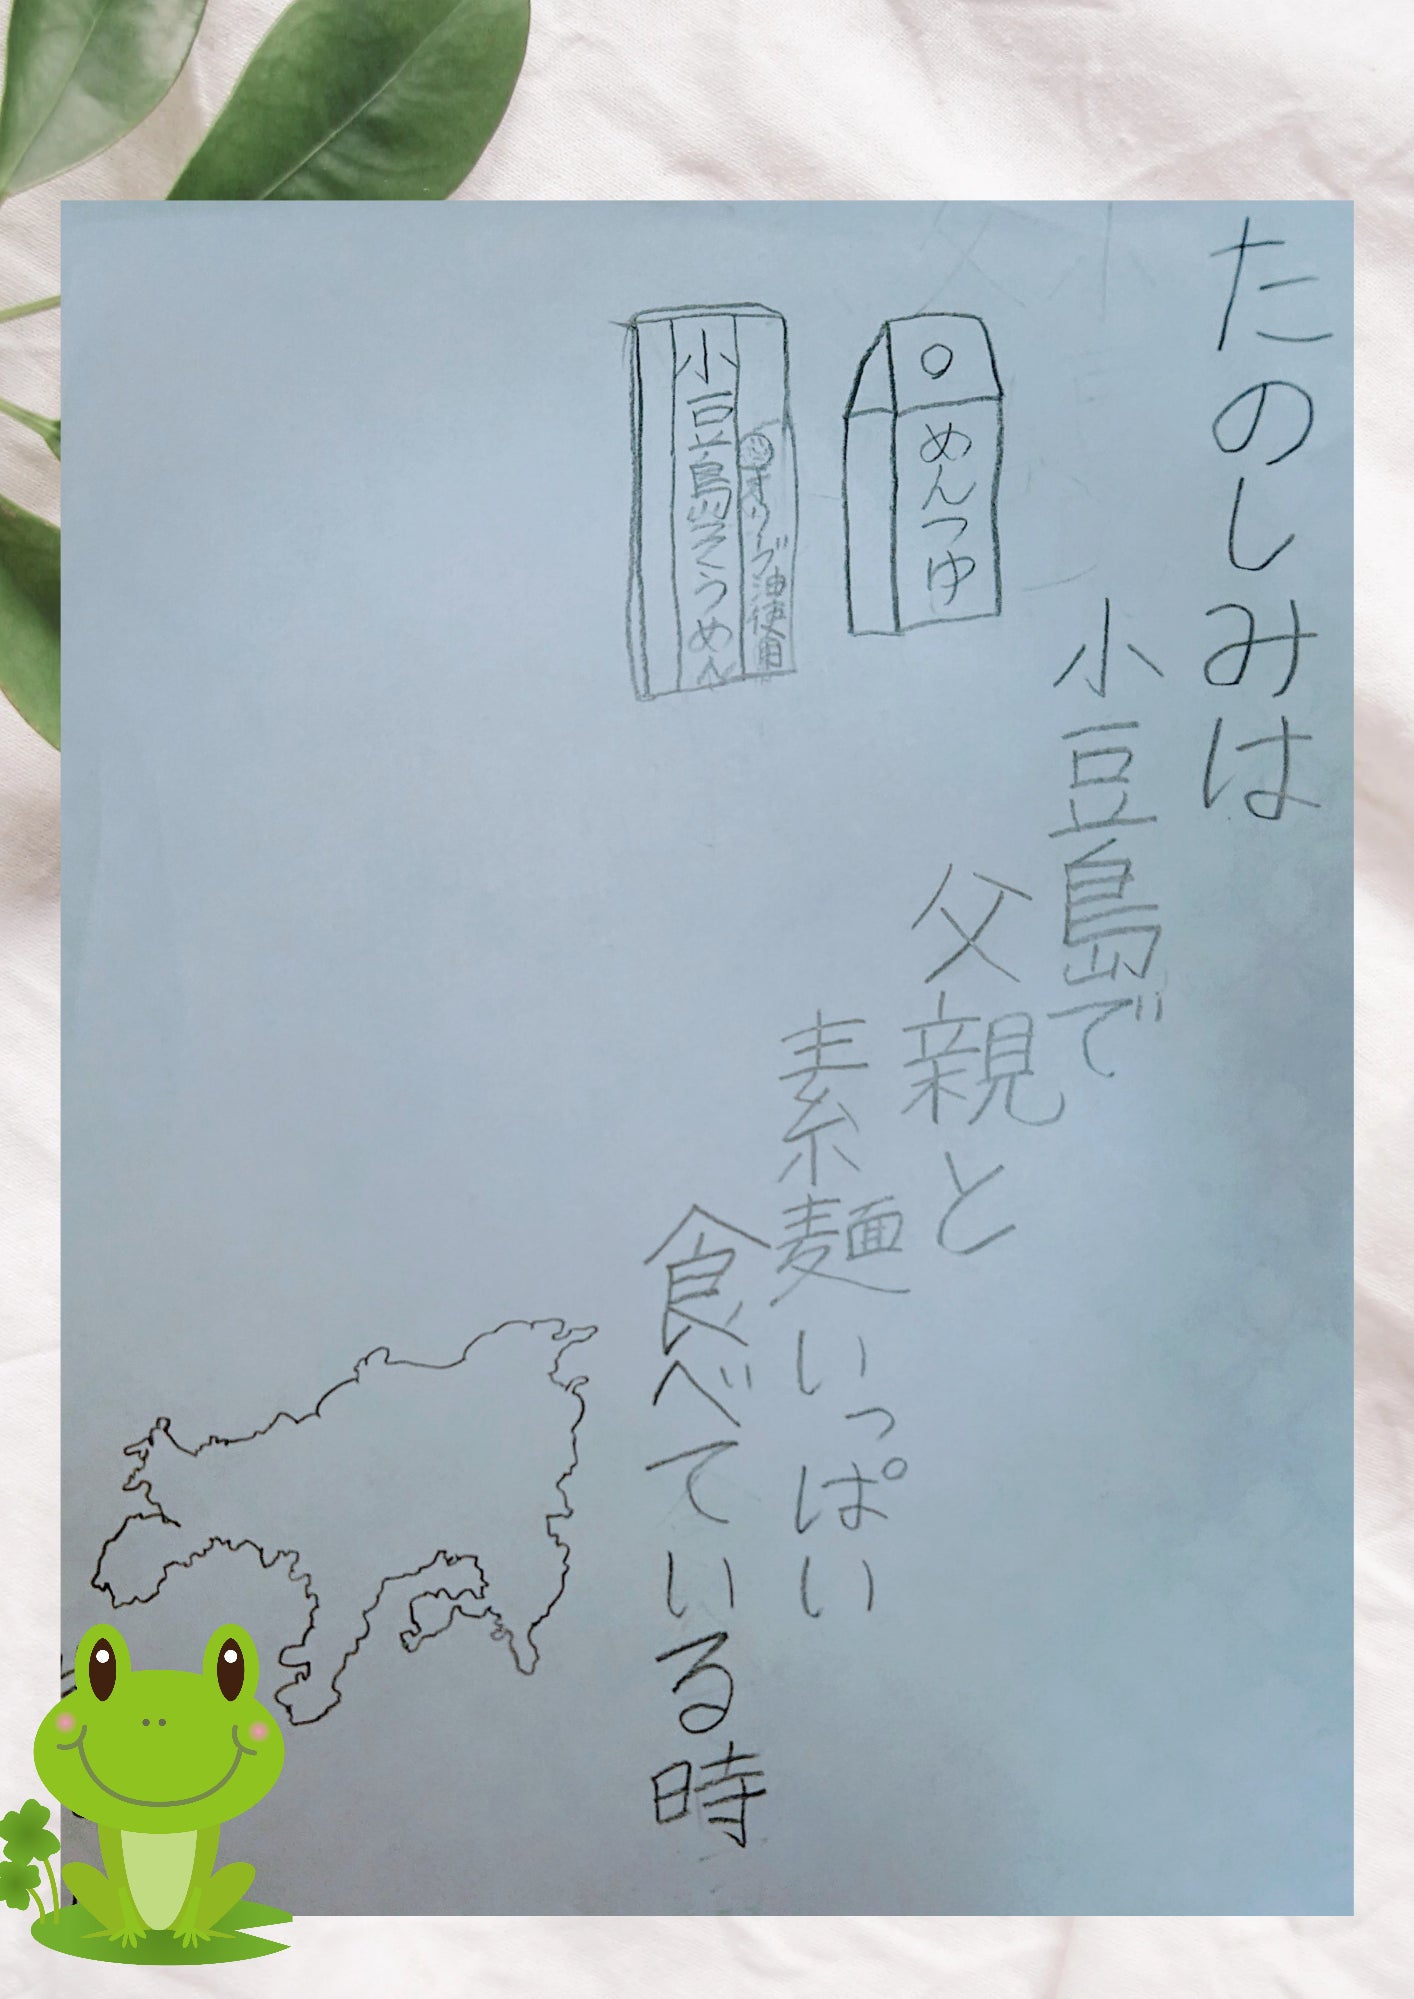 たのしみは
小豆島で
父親と
素麺いっぱい
食べている時
めんつゆ
オリーブ油使用
小豆島そうめん